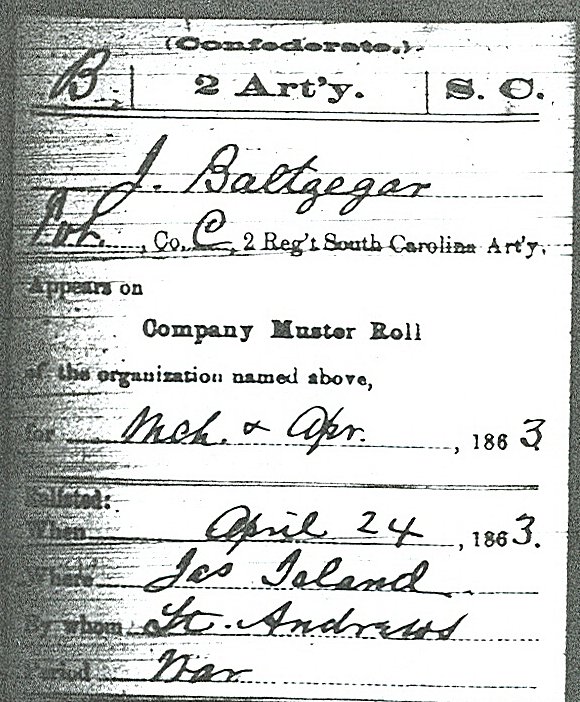 (Confederate.)
B | 2 Art'y. | S. C.
J. Baltzegar
Pvt., Co. C, 2 Reg't South Carolina Art'y.
Appears on
Company Muster Roll
of the organization named above,
for Mch. & Apr., 1863.
Enlisted:
When April 24, 1863.
Where Jas Island
By whom Lt. Andrews
Period War